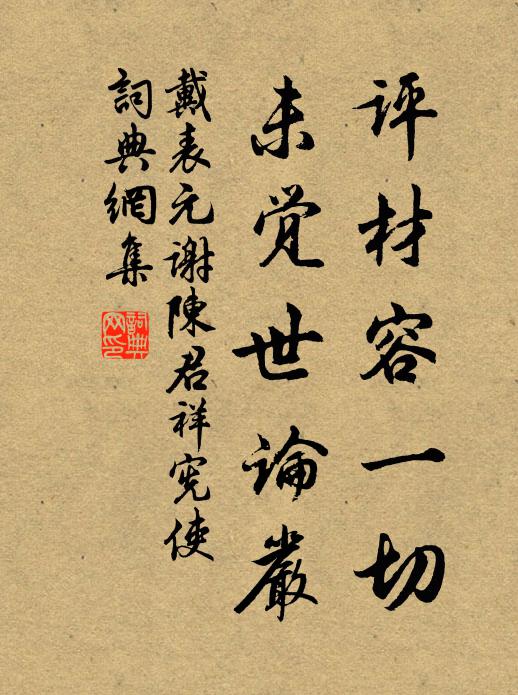 评材容一切
未觉世論嚴
戴表元谢陳君祥宪使
詞典網集
詞典網印